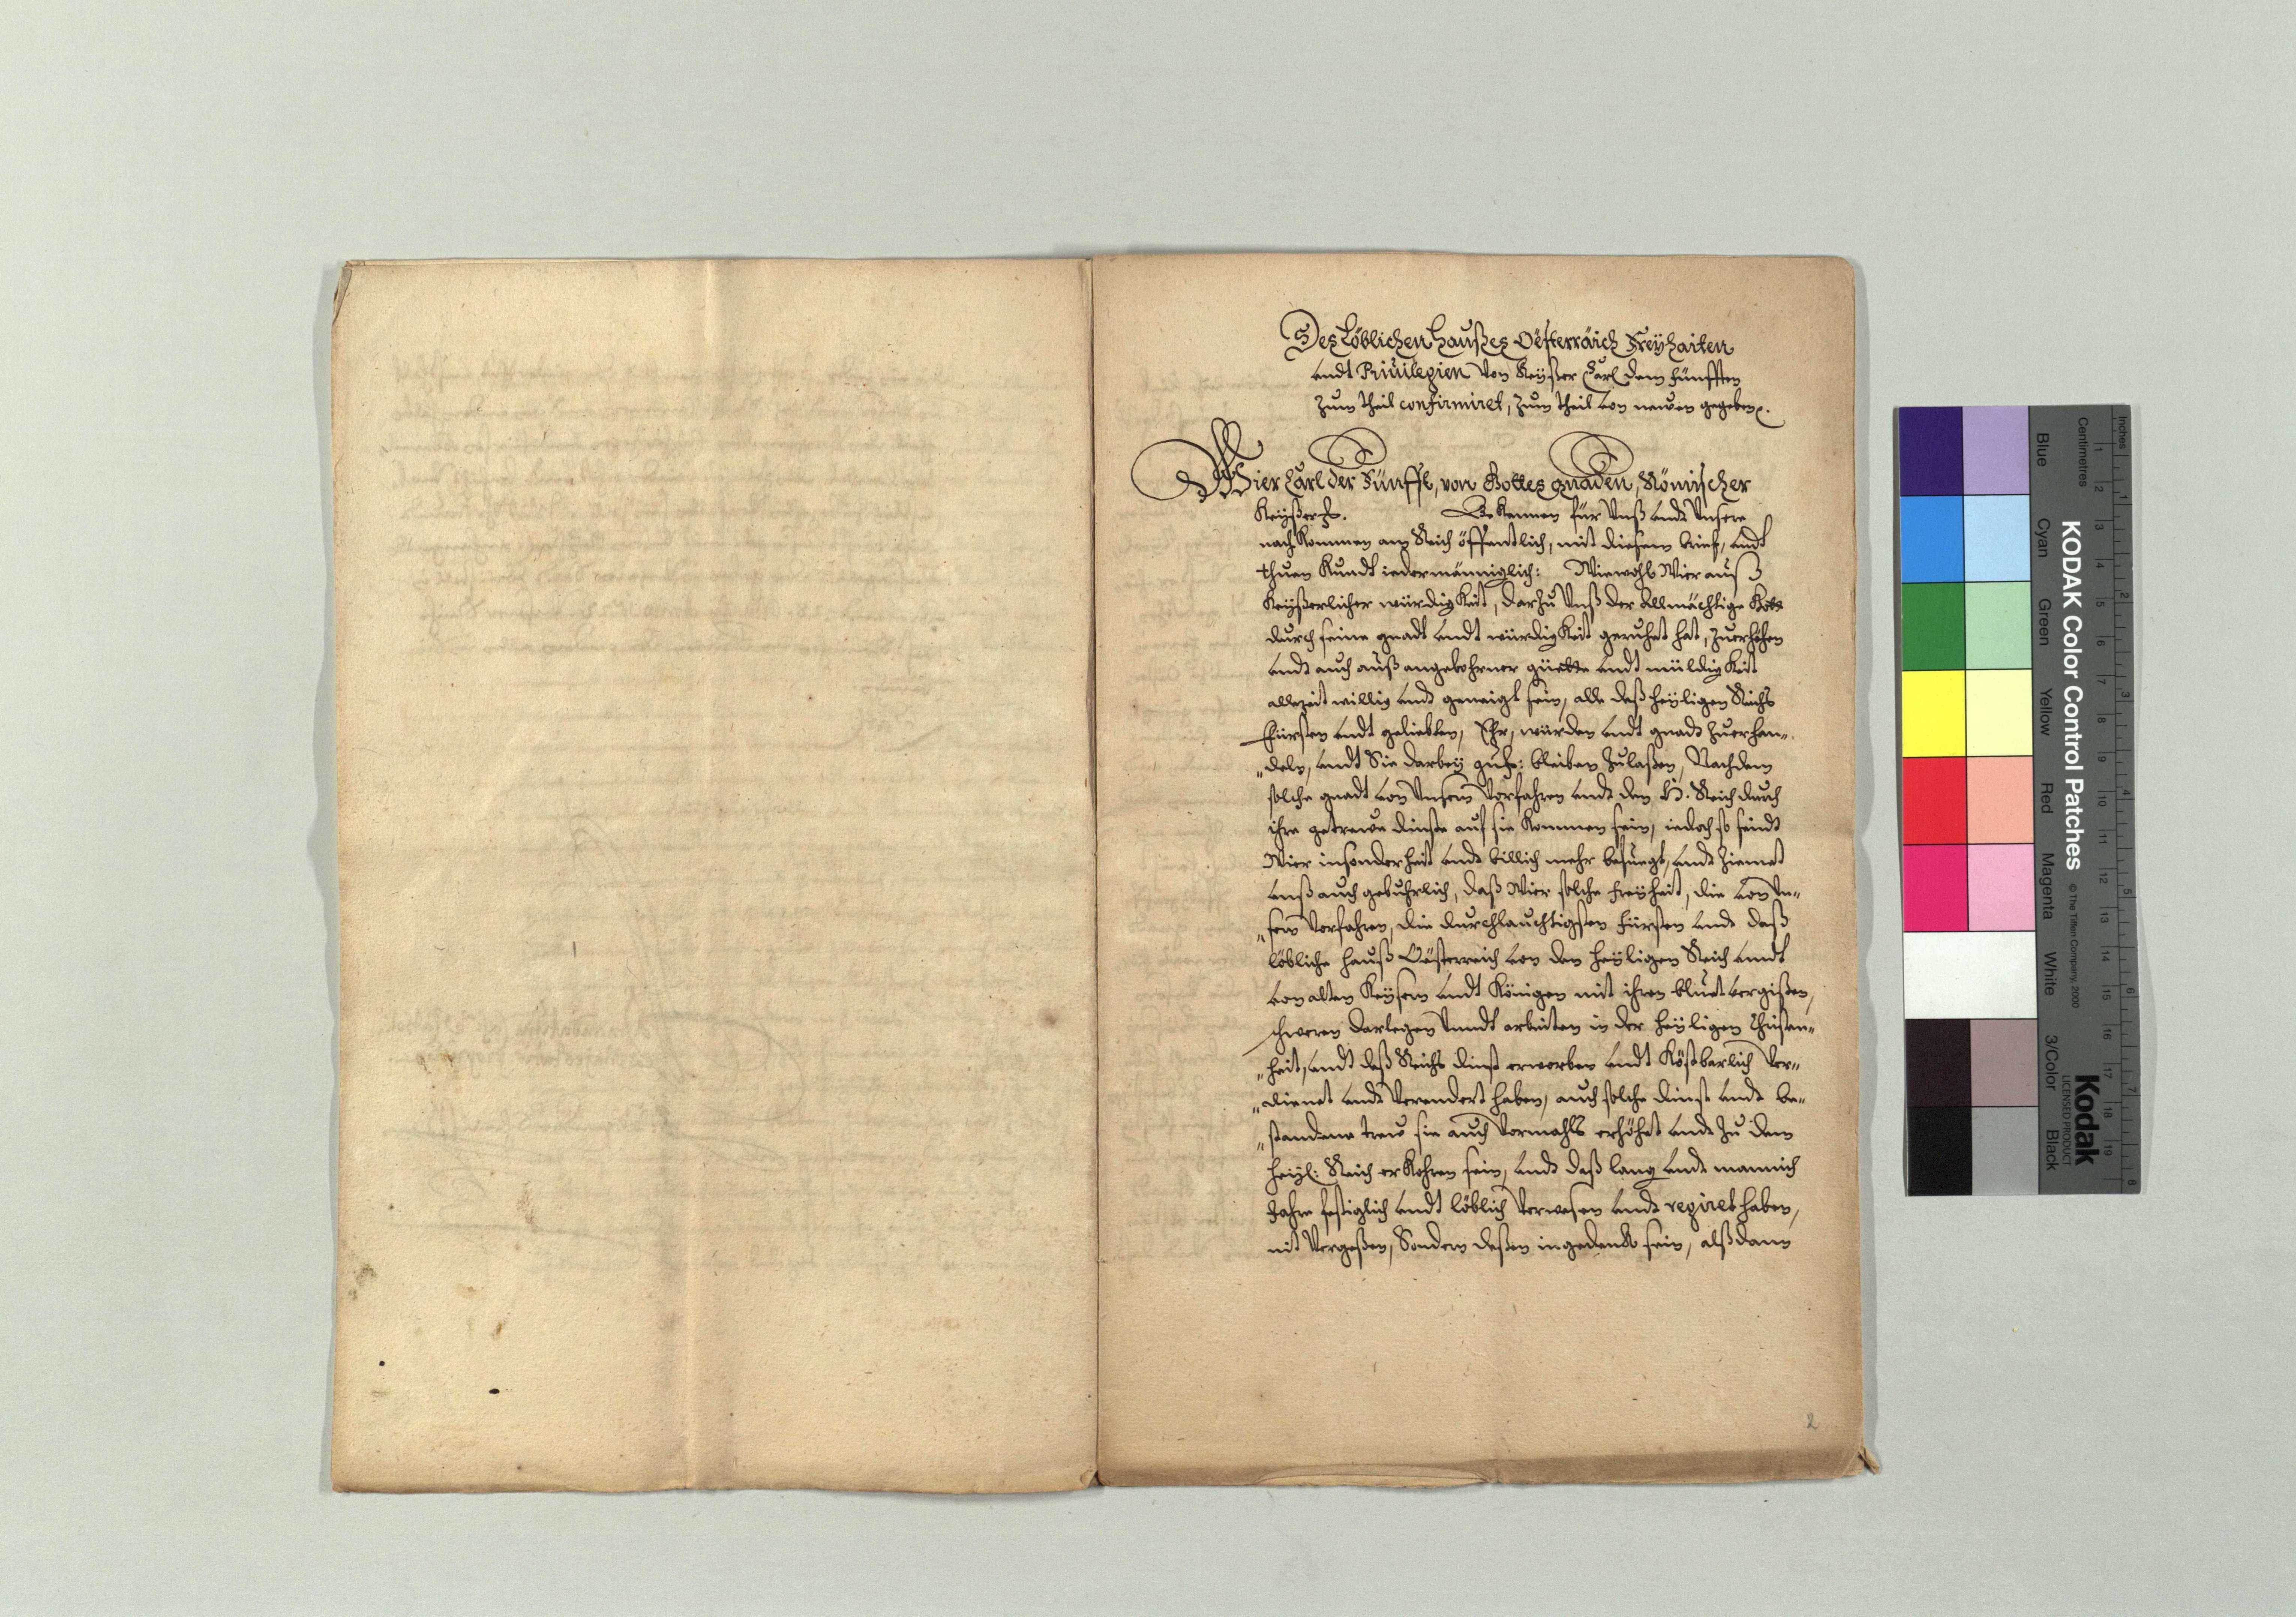 Des Löblichen Haußes Oësterräich Freÿhaiten
undt Priuilegien Von Keÿßer Carl dem fünfften
zum theil confirmiret, zum theil von newen gegeben.
Wier Carl der Fünfft, von Gottes gnaden, Römischer
Keÿßer. Bekennen für Unß undt Unsere
nachkommen am Reich öffentlich, mit diesem brief, undt
thuen Kundt iedermänniglich: Wiewohl Wier auß
Keÿßerlicher würdigkeit, darzu Unß der Allmächtige Gott
durch seine gnadt undt würdigkeit geruhet hat, zuerhöhen
undt auch auß angebohrner güette undt müldigkeit
allezeit willig undt geneigt sein, alle deß heÿligen Reichs
fürsten undt geliebten, Ehr, würden undt gnadt zuerhan-
deln, undt Sie darbeÿ bleiben zulaßen, Nachdem
solche gnadt von Unsern Vorfahren undt dem H. Reich durch
ihre getrewe dinste auf sie kommen sein, iedoch so seindt
Wier insonderheit undt billich mehr befuegt, undt ziemet
unß auch gebuhrlich, daß Wier solche freÿheit, die von Un-
sern Vorfahren, die durchlauchtigsten fürsten undt daß
löbliche hauß Oësterreich von den heÿligen Reich undt
von alten Keÿsern undt Königen mit ihren bluet vergißen,
schweren darlegen Unndt arbeiten in der heÿligen Christen-
heit, undt deß Reichs dinst erworben undt Kößbarlich Ver-
dienet undt Verendert haben, auch solche dinst undt be-
standene trew sie auch Vormahls erhöhet undt zu dem
heÿl: Reich erkohren sein, undt daß lang undt mannich
Jahre festiglich undt löblich Verwesen undt regiret haben,
nit Vergeßen, Sondern deßen ingedenck sein, alß dann
2
KODAK Color Control Patches
© The Tiffen Company, 2000
Kodak
LICENSED PRODUCT
Blue
Cyan
Green
Yellow
Red
Magenta
White
3/Color
Black
Inches
1 2 3 4 5 6 7 8
Centimetres
1 2 3 4 5 6 7 8 9 10 11 12 13 14 15 16 17 18 19